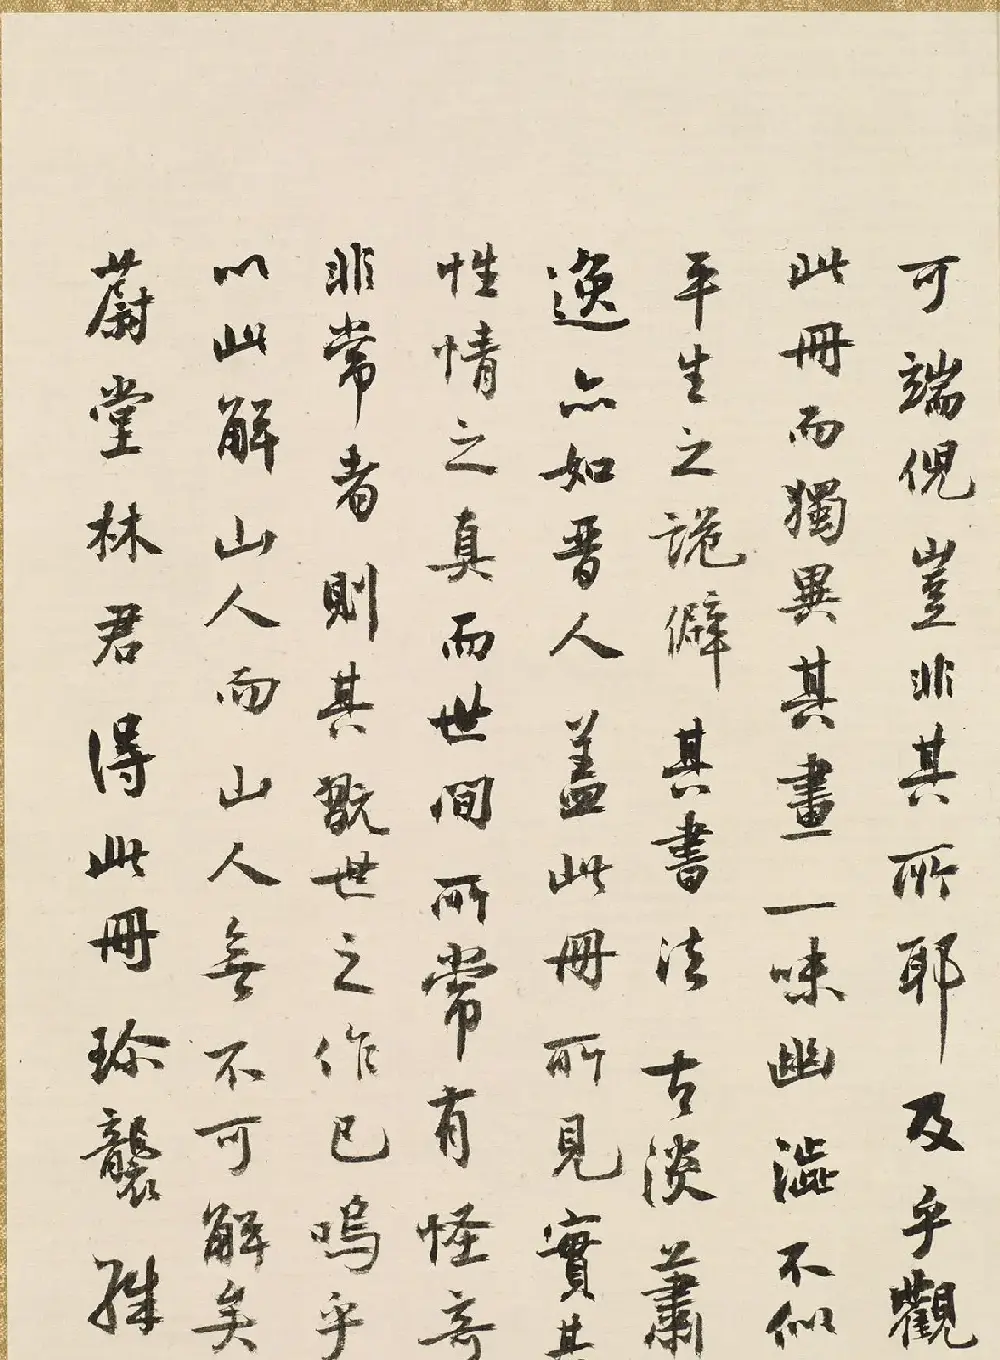 可端倪豈非其所耶及乎觀
此冊而獨異其畫一味幽澁不似
平生之詭僻其書法古淡蕭
逸亦如晋人盖此冊所見實其
性情之真而世間所常有怪奇
非常者則其翫世之作已嗚乎
以此解山人而山人無不可解矣
蔚堂林君得此冊珎襲殊